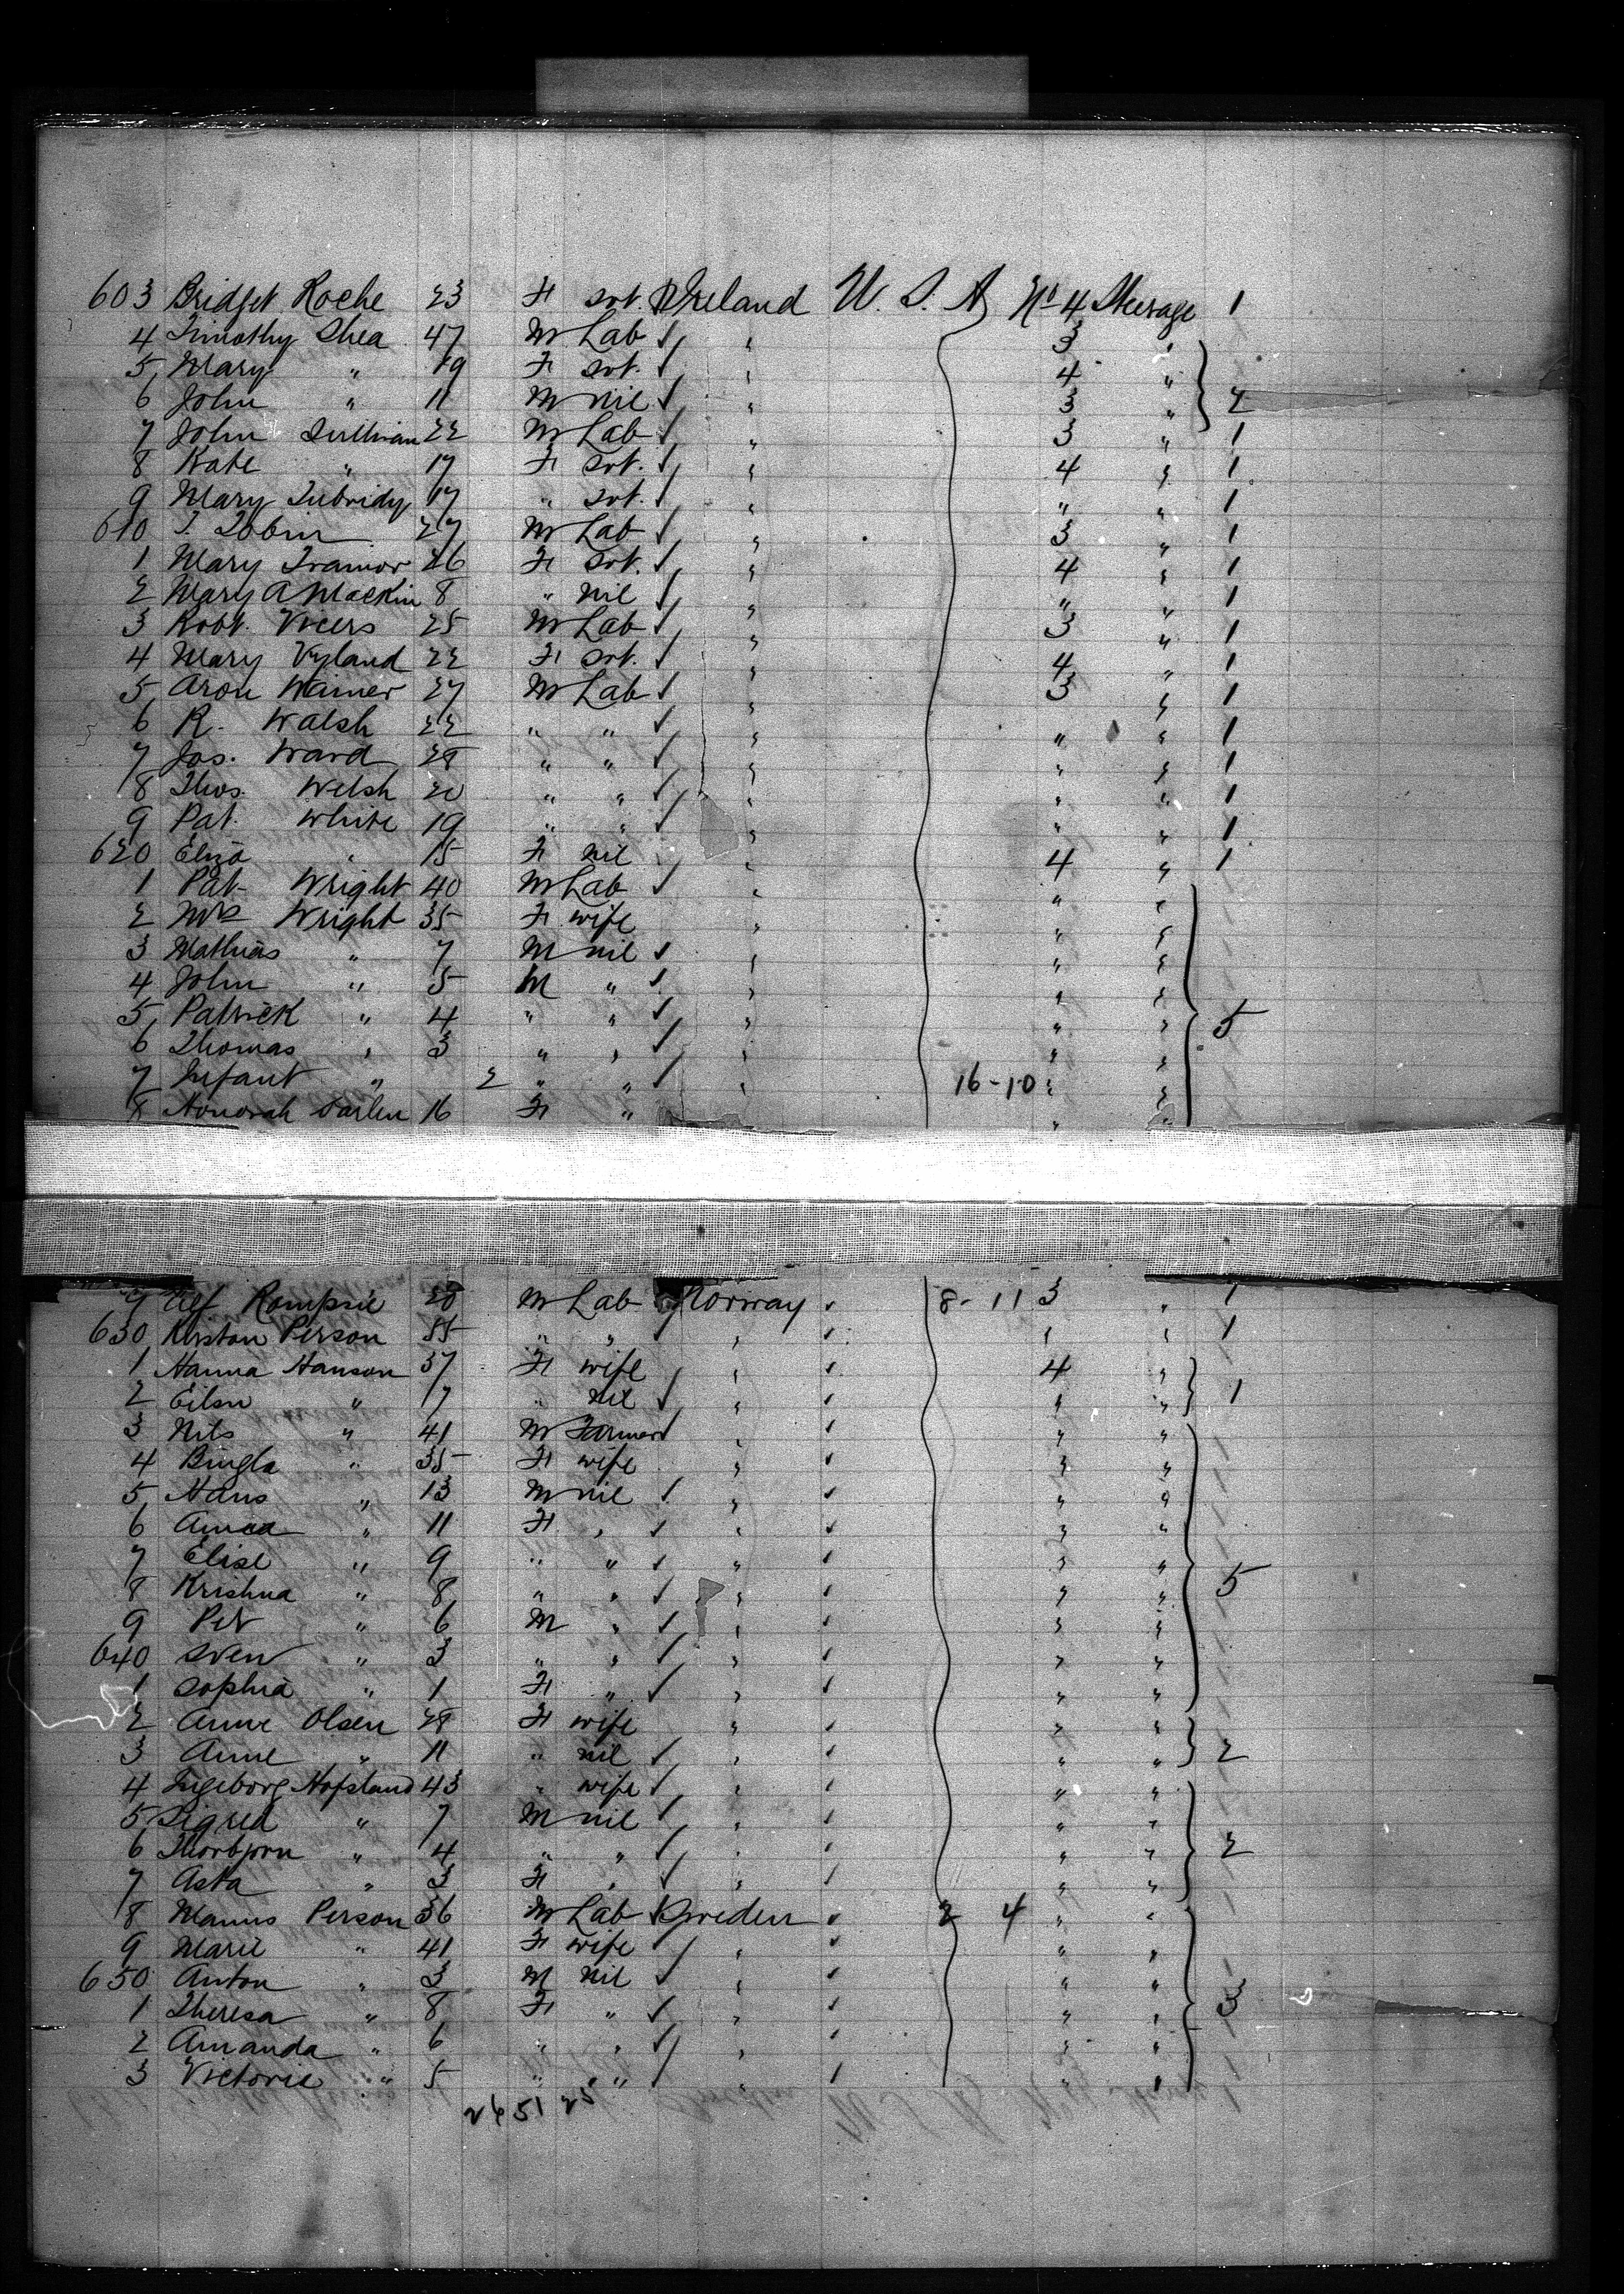 603 Bridget Roche 23 F svt. Ireland U. S. A No 4 Steerage 1
4 Timothy Shea 47 M Lab ✓ " 3 "
5 Mary " 19 F svt. ✓ " 4 "
6 John " 11 M nil ✓ " 3 " 2
7 John Sullivan 22 M Lab ✓ " 3 " 1
8 Kate " 17 F svt. ✓ " 4 " 1
9 Mary Tubridy 17 " svt. ✓ " " " 1
610 T. Tobin 27 M Lab ✓ " 3 " 1
1 Mary Trainor 26 F svt. ✓ " 4 " 1
2 Mary A Mackin 8 " nil ✓ " " " 1
3 Robt. Vicers 25 M Lab ✓ " 3 " 1
4 Mary Vyland 22 F svt. ✓ " 4 " 1
5 Aron Wainer 27 M Lab ✓ " 3 " 1
6 R. Walsh 22 " " ✓ " " " 1
7 Jas. Ward 28 " " ✓ " " " 1
8 Thos. Welsh 20 " " ✓ " " " 1
9 Pat. White 19 " " ✓ " " " 1
620 Eliza " 15 F nil " 4 " 1
1 Pat Wright 40 M Lab ✓ " " "
2 Mrs Wright 35 F wife " " "
3 Mathias " 7 M nil ✓ " " "
4 John " 5 M " ✓ " " "
5 Patrick " 4 " " ✓ " " " 5
6 Thomas " 3 " " ✓ " " "
7 Infant " 2 " " ✓ " 16-10 " "
8 Honorah 16 F " " "
9 Rompsie 20 M Lab Norway ✓ 8-11 3 " 1
630 Person 55 " " ✓ " ✓ " " 1
1 Hanna Hanson 37 F wife " ✓ 4 "
2 Eilsn " 17 " nil ✓ " ✓ " " 1
3 Nils " 41 M Farmer ✓ " ✓ " "
4 Bingla " 35 F wife " ✓ " "
5 Hans " 13 M nil ✓ " ✓ " "
6 Anna " 11 F " ✓ " ✓ " "
7 Elise " 9 " " ✓ " ✓ " "
8 Krishna " 8 " " ✓ " ✓ " " 5
9 Per " 6 M " ✓ " ✓ " "
640 Sven " 3 " " ✓ " ✓ " "
1 Sophia " 1 F " ✓ " ✓ " "
2 Anne Olsen 28 F wife " ✓ " "
3 Anne " 11 " nil ✓ " ✓ " " 2
4 Ingeborg Hofsland 43 " wife ✓ " ✓ " "
5 Sigred " 7 M nil ✓ " ✓ " "
6 Thorbjorn " 4 " " ✓ " ✓ " " 2
7 Asta " 3 F " ✓ " ✓ " "
8 Manus Person 36 M Lab Sweden ✓ 2 4 " "
9 Marie " 41 F wife ✓ " ✓ " "
650 Anton " 3 M nil ✓ " ✓ " "
1 Theresa " 8 F " ✓ " ✓ " " 3
2 Amanda " 6 " " ✓ " ✓ " "
3 Victorie " 5 " " ✓ " ✓ " "